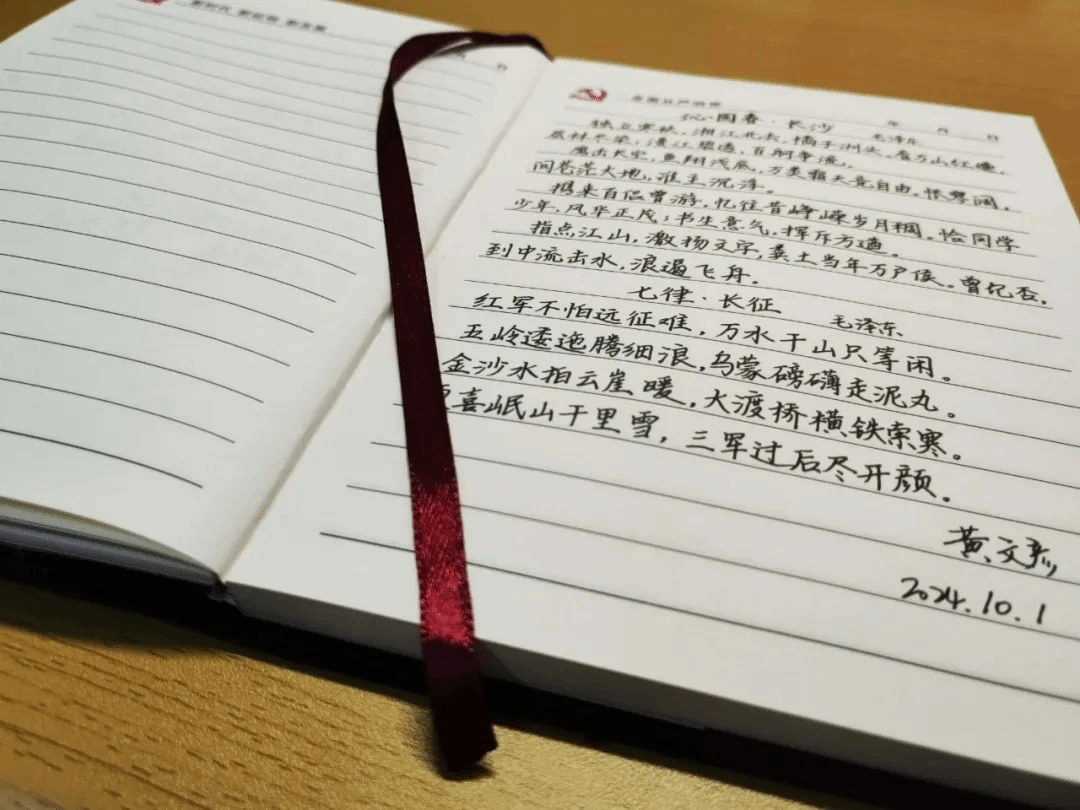 新时代
月 日
全面从严治党
年 月 日
沁园春·长沙 毛泽东
独立寒秋，湘江北去，橘子洲头。看万山红遍，
层林尽染，漫江碧透，百舸争流。
鹰击长空，鱼翔浅底，万类霜天竞自由。怅寥阔，
问苍茫大地，谁主沉浮。
携来百侣曾游，忆往昔峥嵘岁月稠。恰同学
少年，风华正茂；书生意气，挥斥方遒。
指点江山，激扬文字，粪土当年万户侯。曾记否，
到中流击水，浪遏飞舟。
七律·长征 毛泽东
红军不怕远征难，万水千山只等闲。
五岭逶迤腾细浪，乌蒙磅礴走泥丸。
金沙水拍云崖暖，大渡桥横铁索寒。
喜岷山千里雪，三军过后尽开颜。
黄文
2024.10.1